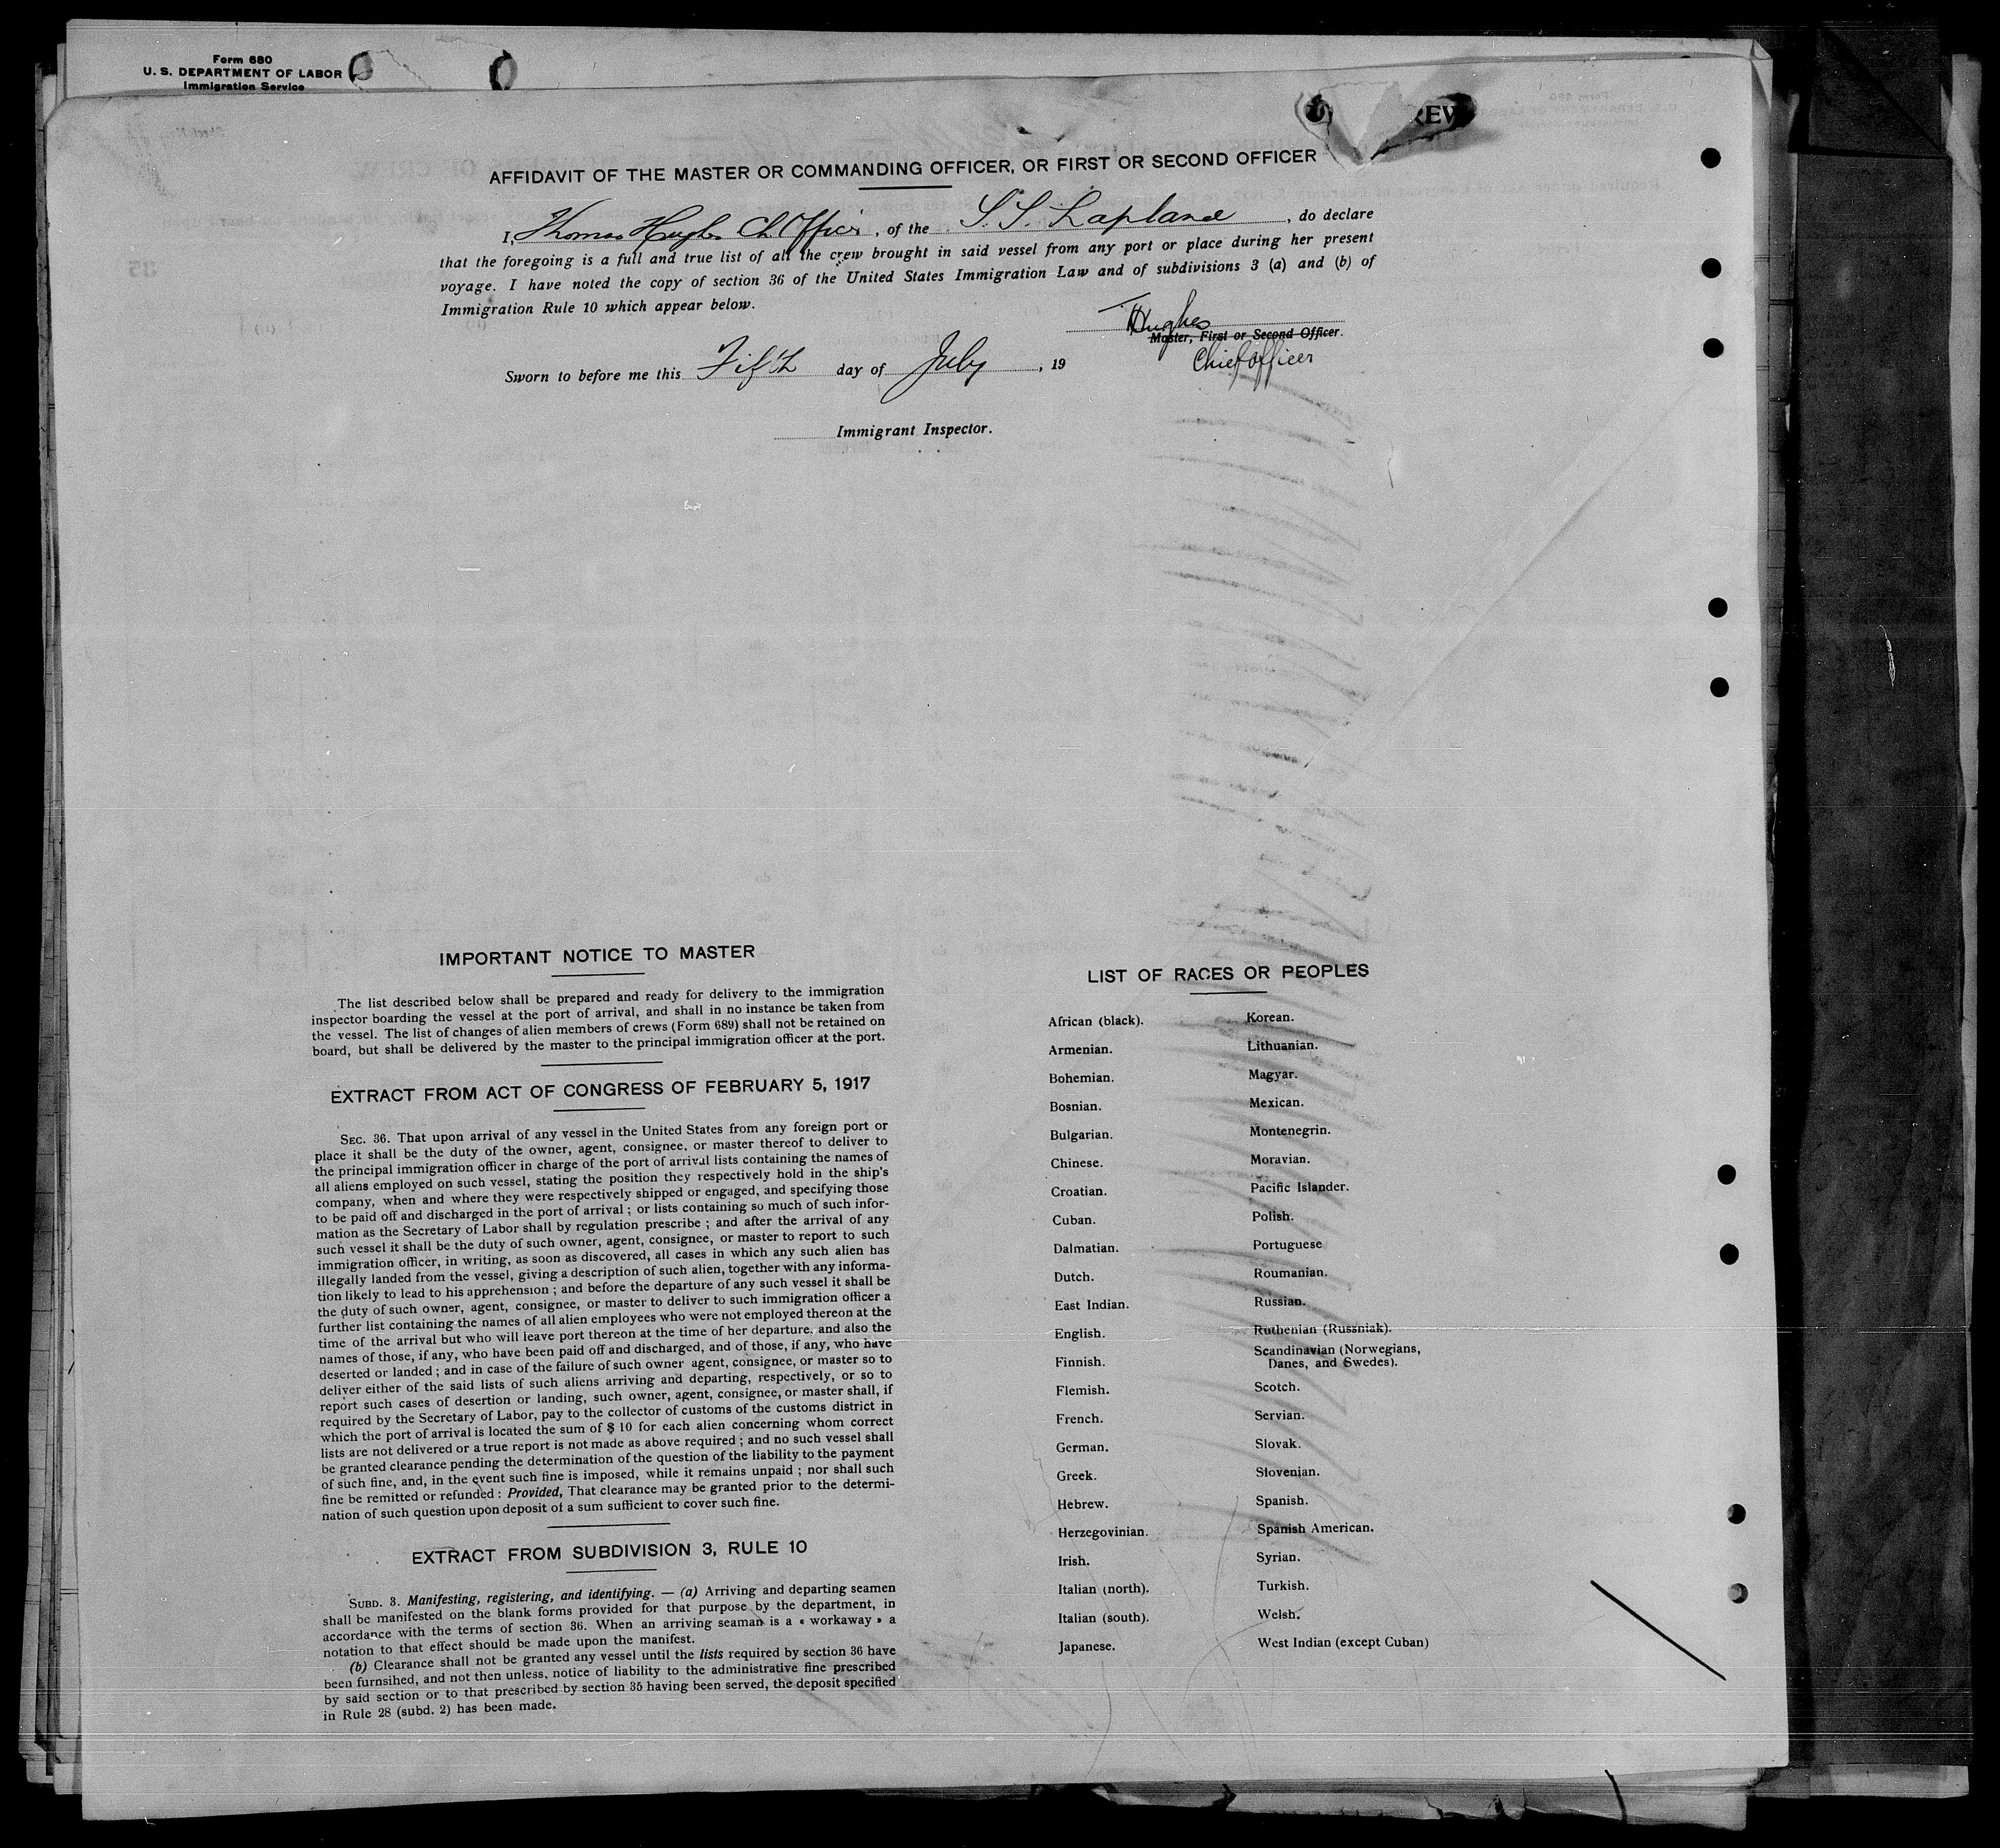 Form 680
U. S. DEPARTMENT OF LABOR
Immigration Service
REW
AFFIDAVIT OF THE MASTER OR COMMANDING OFFICER, OR FIRST OR SECOND OFFICER
I, Thomas Hughes Ch Officer, of the S.S. Lapland, do declare
that the foregoing is a full and true list of all the crew brought in said vessel from any port or place during her present
voyage. I have noted the copy of section 36 of the United States Immigration Law and of subdivisions 3 (a) and (b) of
Immigration Rule 10 which appear below.
T Hughes
Master, First or Second Officer.
Chief Officer
Sworn to before me this Fifth day of July, 19
Immigrant Inspector.
IMPORTANT NOTICE TO MASTER
The list described below shall be prepared and ready for delivery to the immigration
inspector boarding the vessel at the port of arrival, and shall in no instance be taken from
the vessel. The list of changes of alien members of crews (Form 689) shall not be retained on
board, but shall be delivered by the master to the principal immigration officer at the port.
EXTRACT FROM ACT OF CONGRESS OF FEBRUARY 5, 1917
SEC. 36. That upon arrival of any vessel in the United States from any foreign port or
place it shall be the duty of the owner, agent, consignee, or master thereof to deliver to
the principal immigration officer in charge of the port of arrival lists containing the names of
all aliens employed on such vessel, stating the position they respectively hold in the ship's
company, when and where they were respectively shipped or engaged, and specifying those
to be paid off and discharged in the port of arrival ; or lists containing so much of such infor-
mation as the Secretary of Labor shall by regulation prescribe ; and after the arrival of any
such vessel it shall be the duty of such owner, agent, consignee, or master to report to such
immigration officer, in writing, as soon as discovered, all cases in which any such alien has
illegally landed from the vessel, giving a description of such alien, together with any informa-
tion likely to lead to his apprehension ; and before the departure of any such vessel it shall be
the duty of such owner, agent, consignee, or master to deliver to such immigration officer a
further list containing the names of all alien employees who were not employed thereon at the
time of the arrival but who will leave port thereon at the time of her departure, and also the
names of those, if any, who have been paid off and discharged, and of those, if any, who have
deserted or landed ; and in case of the failure of such owner agent, consignee, or master so to
deliver either of the said lists of such aliens arriving and departing, respectively, or so to
report such cases of desertion or landing, such owner, agent, consignee, or master shall, if
required by the Secretary of Labor, pay to the collector of customs of the customs district in
which the port of arrival is located the sum of $ 10 for each alien concerning whom correct
lists are not delivered or a true report is not made as above required ; and no such vessel shall
be granted clearance pending the determination of the question of the liability to the payment
of such fine, and, in the event such fine is imposed, while it remains unpaid ; nor shall such
fine be remitted or refunded : Provided, That clearance may be granted prior to the determi-
nation of such question upon deposit of a sum sufficient to cover such fine.
EXTRACT FROM SUBDIVISION 3, RULE 10
SUBD. 3. Manifesting, registering, and identifying. — (a) Arriving and departing seamen
shall be manifested on the blank forms provided for that purpose by the department, in
accordance with the terms of section 36. When an arriving seaman is a « workaway » a
notation to that effect should be made upon the manifest.
(b) Clearance shall not be granted any vessel until the lists required by section 36 have
been furnsihed, and not then unless, notice of liability to the administrative fine prescribed
by said section or to that prescribed by section 35 having been served, the deposit specified
in Rule 28 (subd. 2) has been made.
LIST OF RACES OR PEOPLES
African (black).
Armenian.
Bohemian.
Bosnian.
Bulgarian.
Chinese.
Croatian.
Cuban.
Dalmatian.
Dutch.
East Indian.
English.
Finnish.
Flemish.
French.
German.
Greek.
Hebrew.
Herzegovinian.
Irish.
Italian (north).
Italian (south).
Japanese.
Korean.
Lithuanian.
Magyar.
Mexican.
Montenegrin.
Moravian.
Pacific Islander.
Polish.
Portuguese
Roumanian.
Russian.
Ruthenian (Russniak).
Scandinavian (Norwegians,
Danes, and Swedes).
Scotch.
Servian.
Slovak.
Slovenian.
Spanish.
Spanish American.
Syrian.
Turkish.
Welsh.
West Indian (except Cuban)